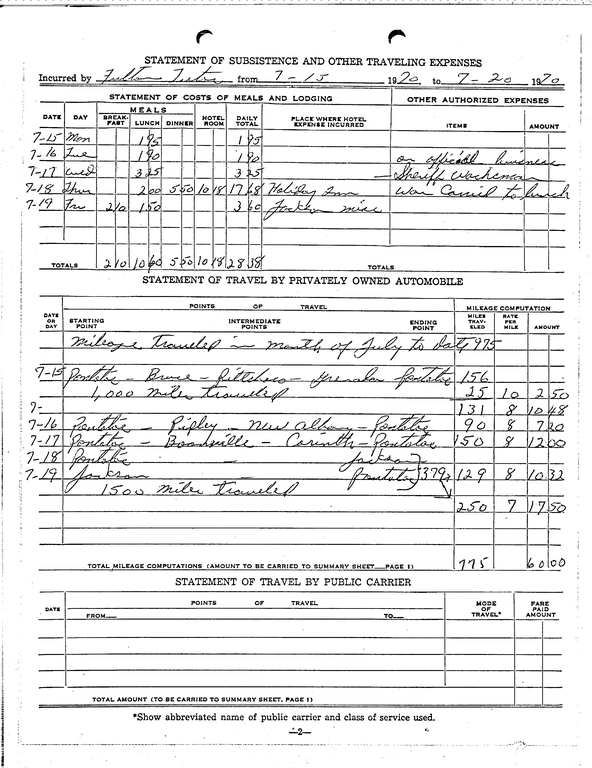 STATEMENT OF SUBSISTENCE AND OTHER TRAVELING EXPENSES
Incurred by Fulton Tutor from 7-15 1970, to 7-20 1970
STATEMENT OF COSTS OF MEALS AND LODGING OTHER AUTHORIZED EXPENSES
DATE DAY MEALS HOTEL ROOM DAILY TOTAL PLACE WHERE HOTEL EXPENSE INCURRED ITEMS AMOUNT
BREAKFAST LUNCH DINNER
7-15 Mon 1 95 1 95
7-16 Tue 1 90 1 90 on official business
7-17 Wed 3 25 3 25 Sheriff
7-18 Thu 2 00 5 50 10 18 17 68 Holiday Inn Was Carried to lunch
7-19 Fri 2 10 1 50 3 60 Jackson Miss
TOTALS 2 10 10 60 5 50 10 18 28 38 TOTALS
STATEMENT OF TRAVEL BY PRIVATELY OWNED AUTOMOBILE
DATE OR DAY POINTS OF TRAVEL MILEAGE COMPUTATION
STARTING POINT INTERMEDIATE POINTS ENDING POINT MILES TRAVELED RATE PER MILE AMOUNT
Mileage Traveled in month of July to Date 975
7-15 Pontotoc - Bruce - Pittsboro - Grenada Pontotoc 156
1,000 miles traveled 25 10 2 50
7- 131 8 10 48
7-16 Pontotoc - Ripley - New Albany - Pontotoc 90 8 7 20
7-17 Pontotoc - Booneville - Corinth - Pontotoc 150 8 12 00
7-18 Pontotoc - Jackson
7-19 Jackson - Pontotoc 379 129 8 10 32
1500 miles traveled
250 7 17 50
TOTAL MILEAGE COMPUTATIONS (AMOUNT TO BE CARRIED TO SUMMARY SHEET—PAGE 1) 775 60 00
STATEMENT OF TRAVEL BY PUBLIC CARRIER
DATE POINTS OF TRAVEL MODE OF TRAVEL* FARE PAID AMOUNT
FROM— TO—
TOTAL AMOUNT (TO BE CARRIED TO SUMMARY SHEET, PAGE 1)
*Show abbreviated name of public carrier and class of service used.
—2—